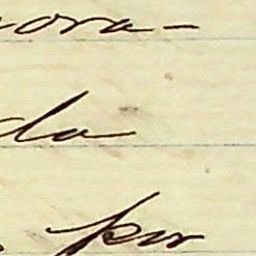 ora-
da
por